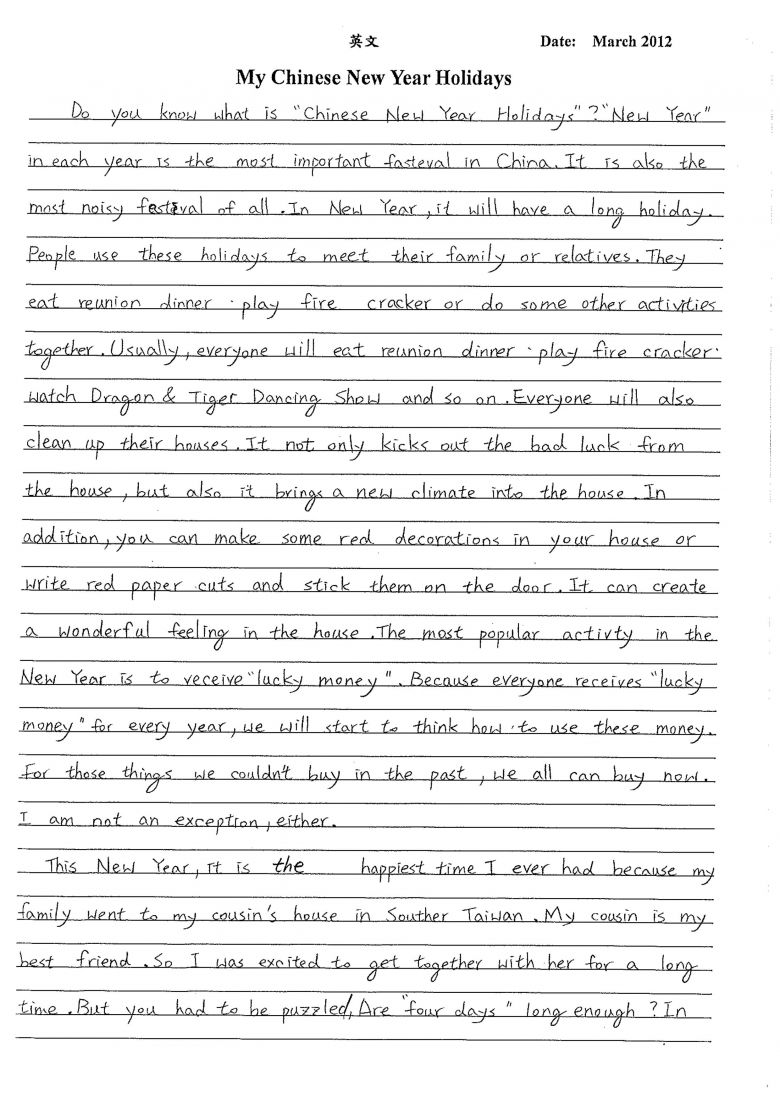 英文
Date: March 2012
My Chinese New Year Holidays
Do you know what is "Chinese New Year Holidays"? "New Year"
in each year is the most important fasteval in China. It is also the
most noisy festival of all. In New Year, it will have a long holiday.
People use these holidays to meet their family or relatives. They
eat reunion dinner、play fire cracker or do some other activities
together. Usually, everyone will eat reunion dinner、play fire cracker、
watch Dragon & Tiger Dancing Show and so on. Everyone will also
clean up their houses. It not only kicks out the bad luck from
the house, but also it brings a new climate into the house. In
addition, you can make some red decorations in your house or
write red paper cuts and stick them on the door. It can create
a wonderful feeling in the house. The most popular activty in the
New Year is to receive "lucky money". Because everyone receives "lucky
money" for every year, we will start to think how to use these money.
For those things we couldn't buy in the past, we all can buy now.
I am not an exception, either.
This New Year, it is the happiest time I ever had because my
family went to my cousin's house in Souther Taiwan. My cousin is my
best friend. So I was excited to get together with her for a long
time. But you had to be puzzled, Are "four days" long enough? In